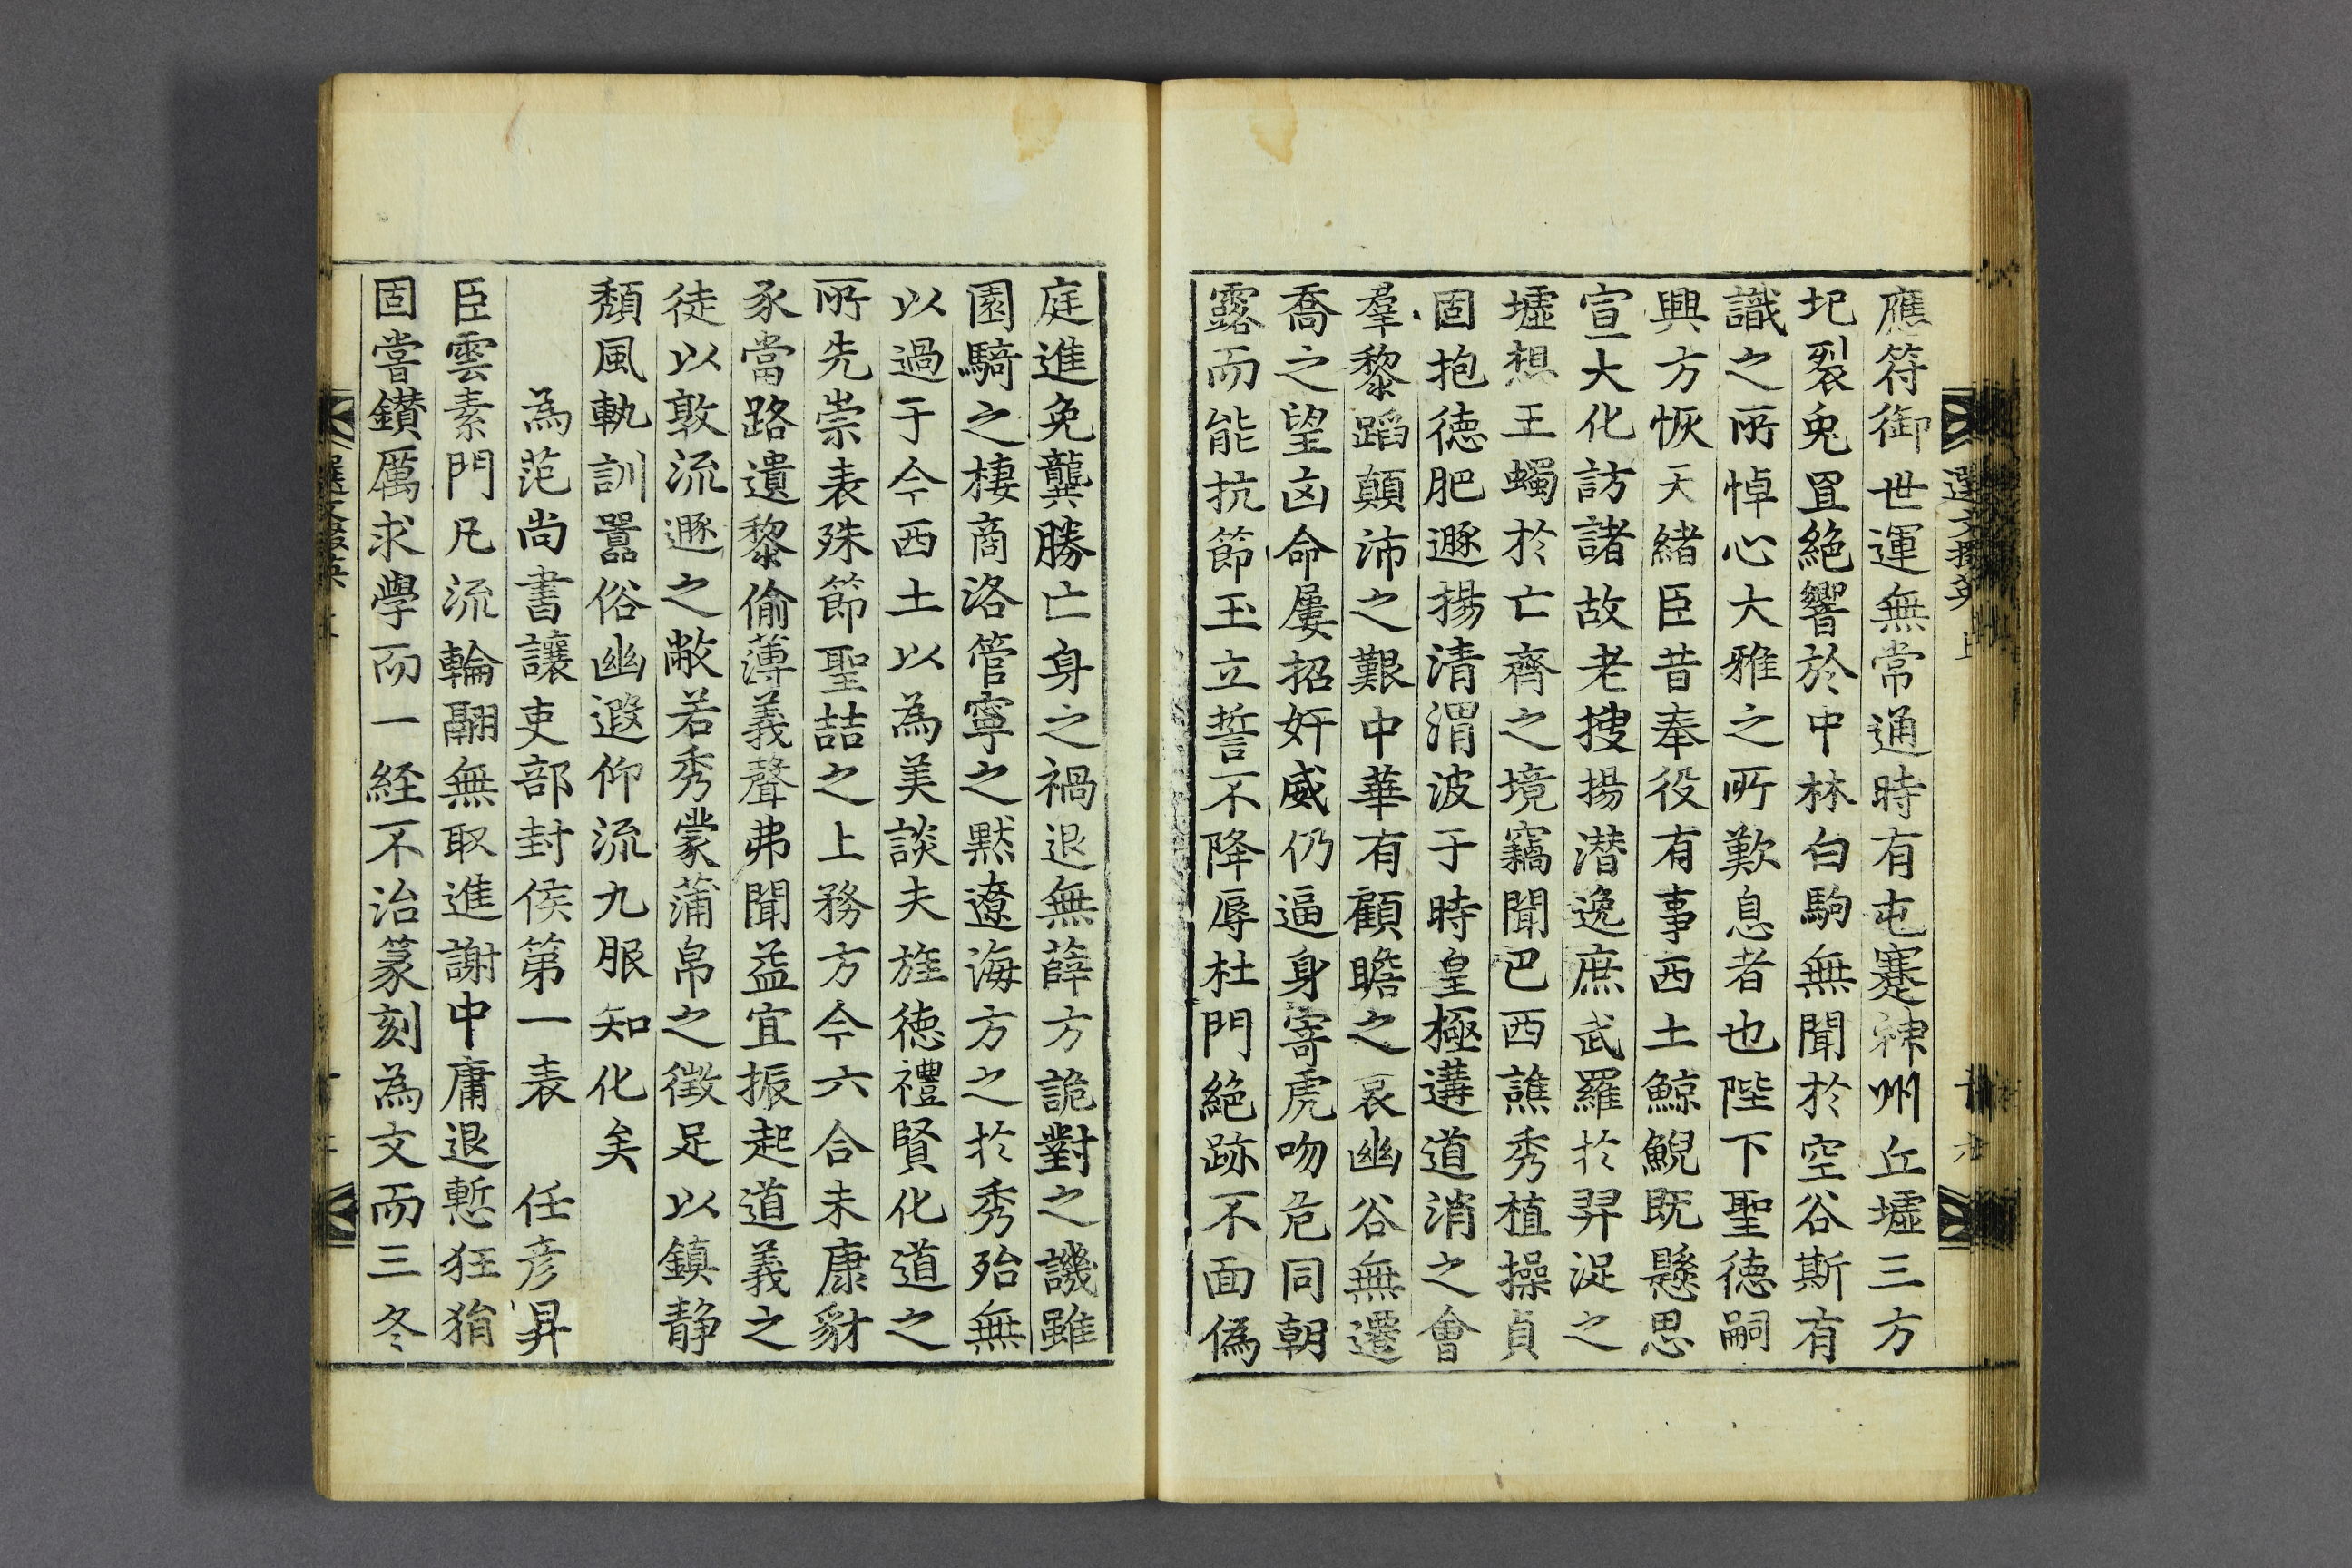 應符御世運無常通時有屯蹇神州丘墟三方
圮裂兎罝絶響於中林白駒無聞於空谷斯有
識之所悼心大雅之所歎息者也陛下聖徳嗣
興方恢天緒臣昔奉役有事西土鯨鯢既懸思
宣大化訪諸故老搜揚潜逸庶武羅於羿浞之
墟想王蠋於亡齊之境竊聞巴西譙秀植操貞
固抱徳肥遯揚清渭波于時皇極遘道消之會
羣黎蹈顛沛之艱中華有顧瞻之哀幽谷無遷
喬之望凶命屢招奸威仍逼身寄虎吻危同朝
露而能抗節玉立誓不降辱杜門絶跡不面偽
庭進免龔勝亡身之禍退無薛方詭對之譏雖
園騎之棲商洛管寧之黙遼海方之於秀殆無
以過于今西土以為美談夫旌徳禮賢化道之
所先崇表殊節聖喆之上務方今六合未康豺
豕當路遺黎偷薄義聲弗聞益宜振起道義之
徒以敦流遯之敝若秀蒙蒲帛之徴足以鎮静
頽風軌訓囂俗幽遐仰流九服知化矣
為范尚書讓吏部封侯第一表 任彦昇
臣雲素門凡流輪翮無取進謝中庸退慙狂狷
固嘗鑚厲求學而一経不治篆刻為文而三冬